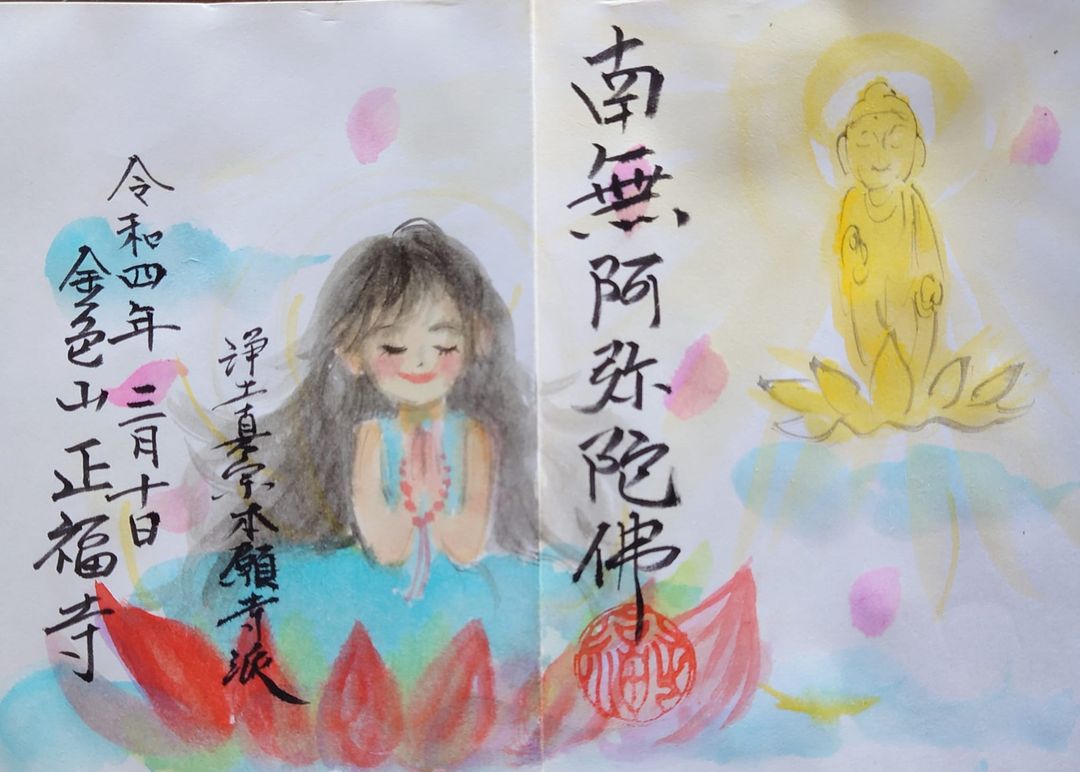 南無阿弥陀佛
浄土真宗本願寺派
令和四年三月十日
金色山正福寺